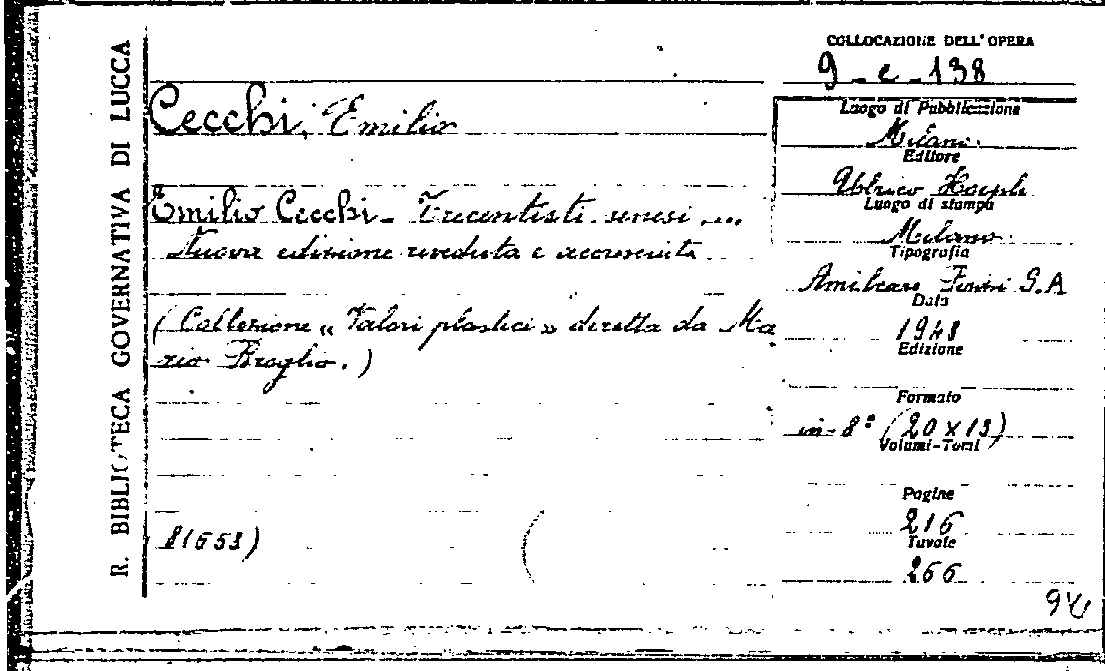 R. BIBLIOTECA GOVERNATIVA DI LUCCA
COLLOCAZIONE DELL'OPERA
9-c-138
Cecchi, Emilio
Emilio Cecchi - Trecentisti senesi ...
Nuova edizione riveduta e accresciuta
(Collezione « Valori plastici » diretta da Ma
rio Broglio.)
81653)
Luogo di Pubblicazione
Milano.
Editore
Ulrico Hoepli
Luogo di stampa
Milano.
Tipografia
Amilcare Pizzi S.A
Data
1948
Edizione
Formato
in-8° (20x13)
Volumi-Tomi
Pagine
216
Tavole
266